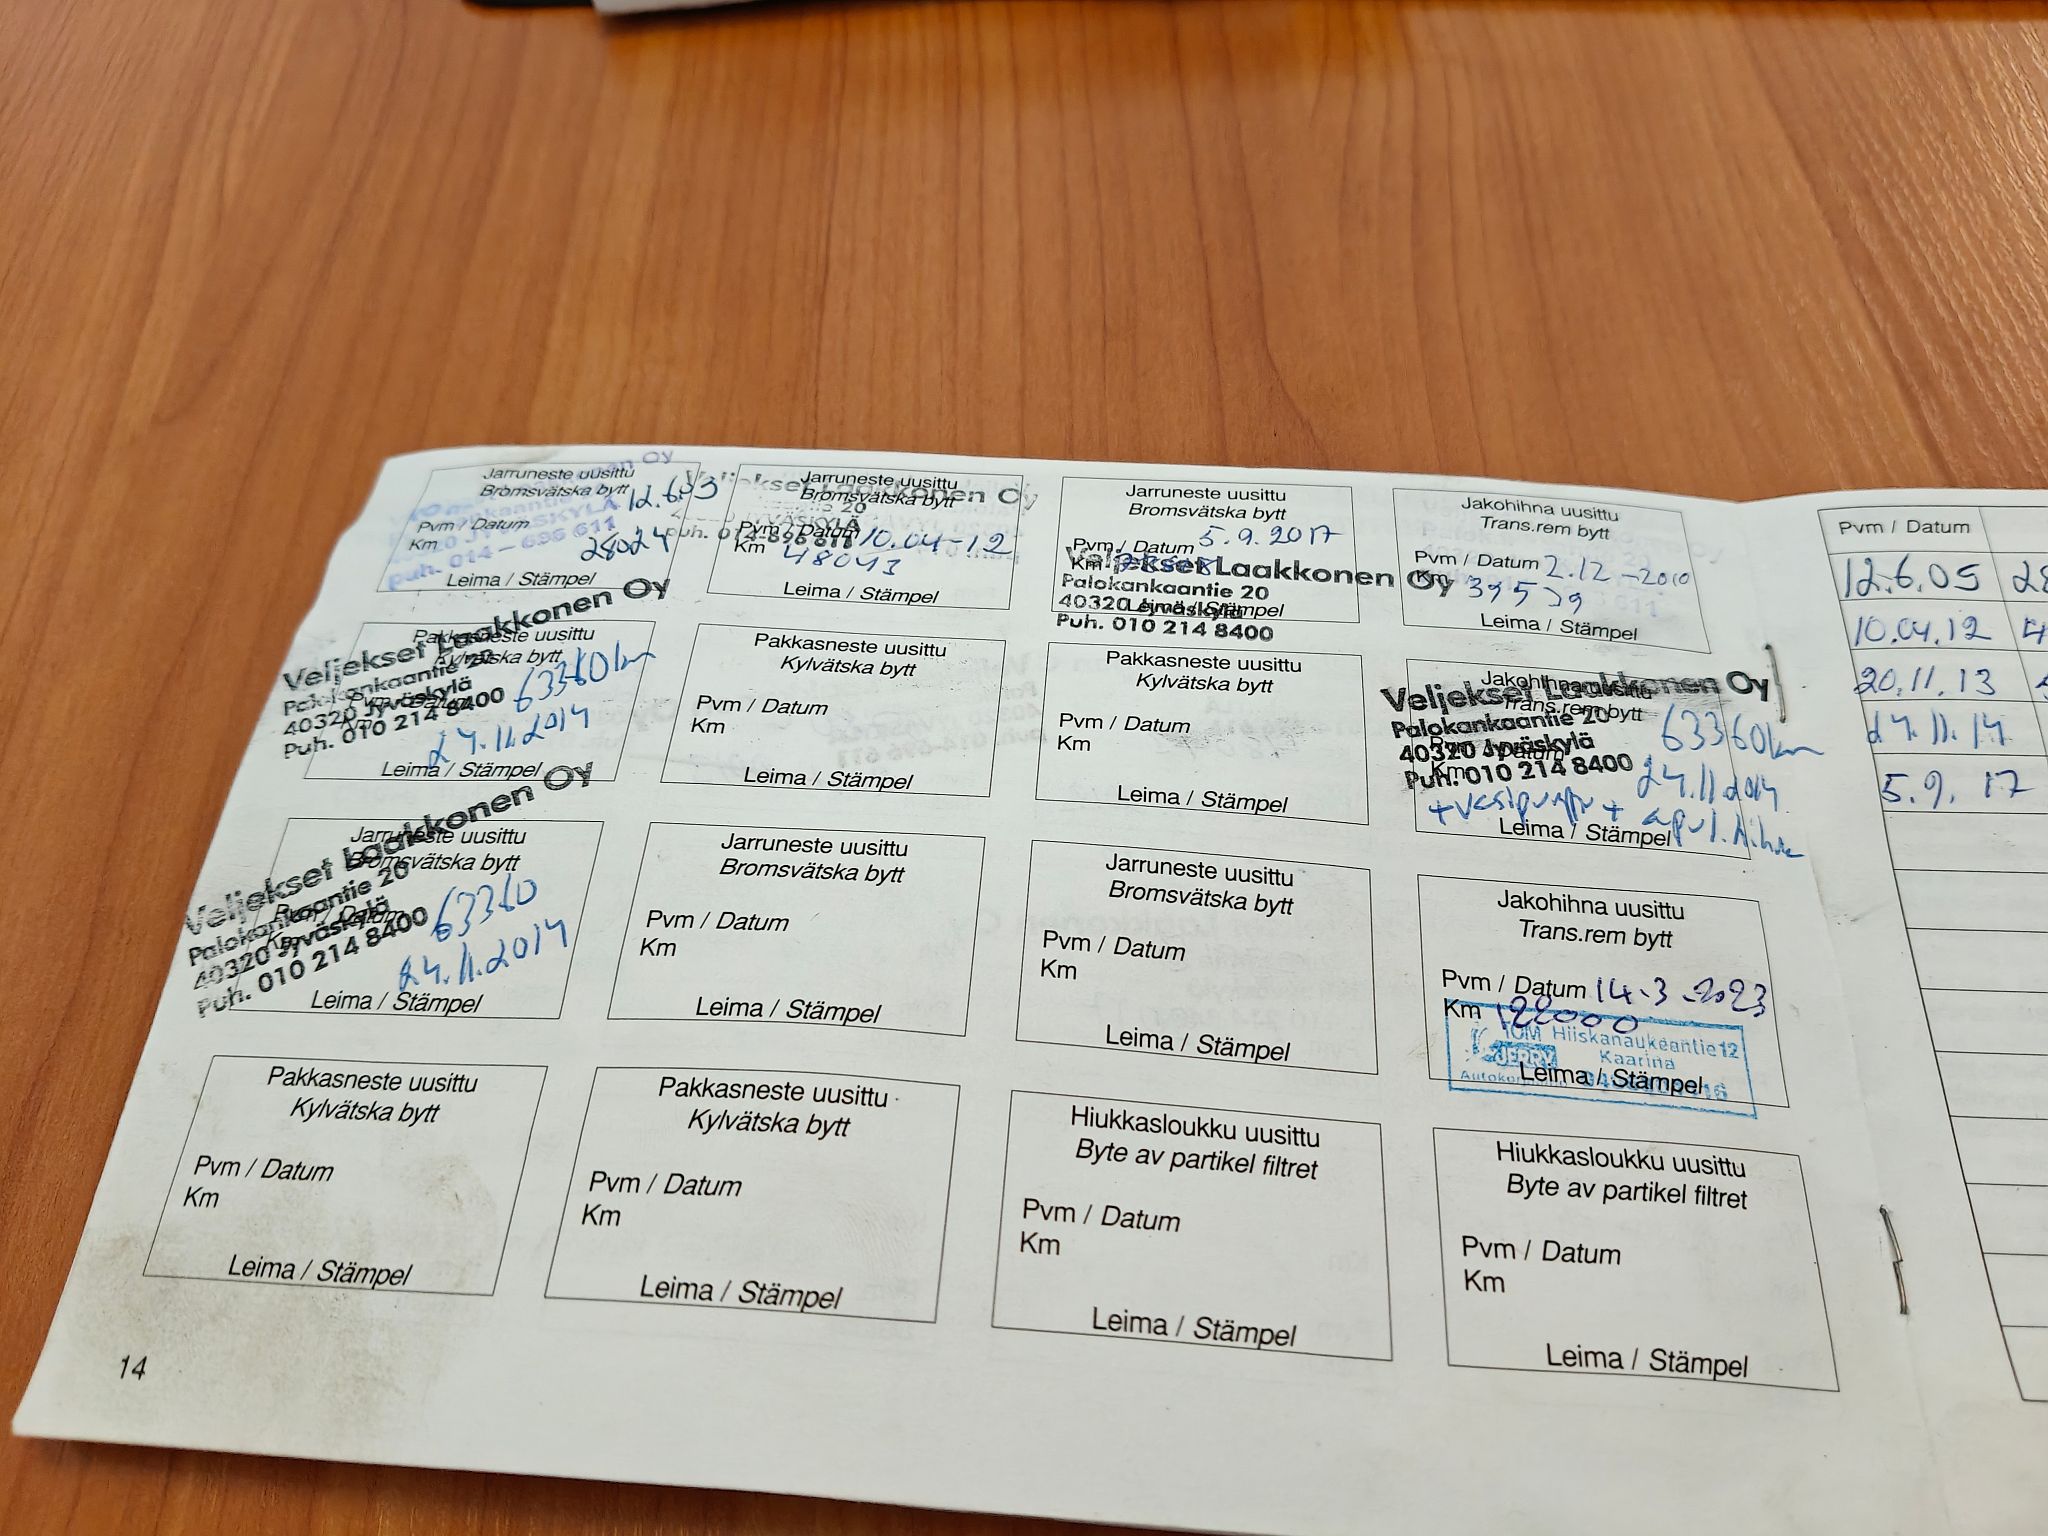 Jarruneste uusittu
Bromsvätska bytt
Pvm / Datum
Km 28024
puh. 014 - 696 611
Leima / Stämpel
Veljekset Laakkonen Oy
Jarruneste uusittu
Bromsvätska bytt
Pvm / Datum 10.04-12
puh. 014-696 611
Km 48043
Leima / Stämpel
Jarruneste uusittu
Bromsvätska bytt
Pvm / Datum 5.9.2017
Km
Veljekset Laakkonen Oy
Palokankaantie 20
40320 Jyväskylä
Puh. 010 214 8400
Leima / Stämpel
Jakohihna uusittu
Trans.rem bytt
Pvm / Datum 2.12-2010
Km 39539
Leima / Stämpel
Pakkasneste uusittu
Kylvätska bytt
Veljekset Laakkonen Oy
Palokankaantie 20
40320 Jyväskylä
Puh. 010 214 8400
63360km
24.11.2014
Leima / Stämpel
Pakkasneste uusittu
Kylvätska bytt
Pvm / Datum
Km
Leima / Stämpel
Pakkasneste uusittu
Kylvätska bytt
Pvm / Datum
Km
Leima / Stämpel
Jakohihna uusittu
Trans.rem bytt
Veljekset Laakkonen Oy
Palokankaantie 20
40320 Jyväskylä
Puh. 010 214 8400
Pvm / Datum
Km
63360km
24.11.2014
+ vesipumppu + apul. hihna
Leima / Stämpel
Jarruneste uusittu
Bromsvätska bytt
Veljekset Laakkonen Oy
Palokankaantie 20
40320 Jyväskylä
Puh. 010 214 8400
Pvm / Datum
Km
63360
24.11.2014
Leima / Stämpel
Jarruneste uusittu
Bromsvätska bytt
Pvm / Datum
Km
Leima / Stämpel
Jarruneste uusittu
Bromsvätska bytt
Pvm / Datum
Km
Leima / Stämpel
Jakohihna uusittu
Trans.rem bytt
Pvm / Datum 14.3.2023
Km 122000
Hiiskanaukeantie 12
JERRY Kaarina
Leima / Stämpel
Pakkasneste uusittu
Kylvätska bytt
Pvm / Datum
Km
Leima / Stämpel
Pakkasneste uusittu
Kylvätska bytt
Pvm / Datum
Km
Leima / Stämpel
Hiukkasloukku uusittu
Byte av partikel filtret
Pvm / Datum
Km
Leima / Stämpel
Hiukkasloukku uusittu
Byte av partikel filtret
Pvm / Datum
Km
Leima / Stämpel
14
Pvm / Datum
12.6.05
10.04.12
20.11.13
24.11.14
5.9.17